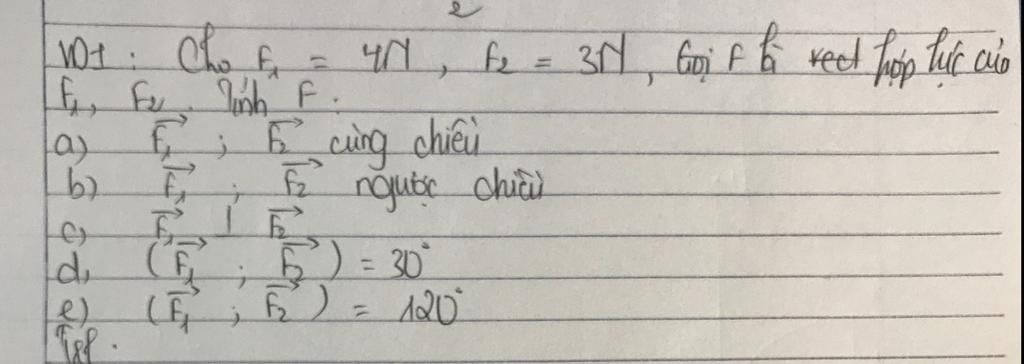 2
VD1 : Cho F₁ = 4N , F₂ = 3N , Gọi F là vect hợp lực của
F₁, F₂. Tính F.
a) F₁→ ; F₂→ cùng chiều
b) F₁→ ; F₂→ ngược chiều
c) F₁→ ⊥ F₂→
d, (F₁→ ; F₂→) = 30°
e) (F₁→ ; F₂→) = 120°